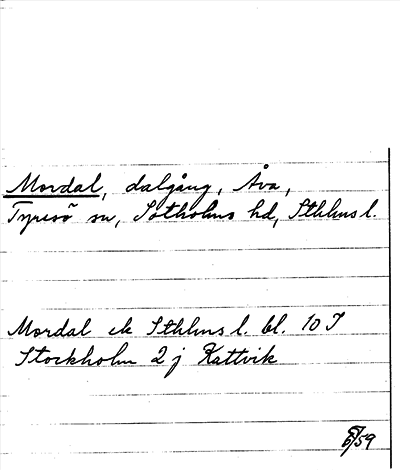 Mordal, dalgång, Åva,
Tyresö sn, Sotholms hd, Sthlms l.
Mordal ek Sthlms l. bl. 10 I
Stockholm 2 j Kattvik
59